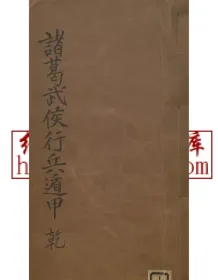 諸葛武侯行兵遁甲 乾